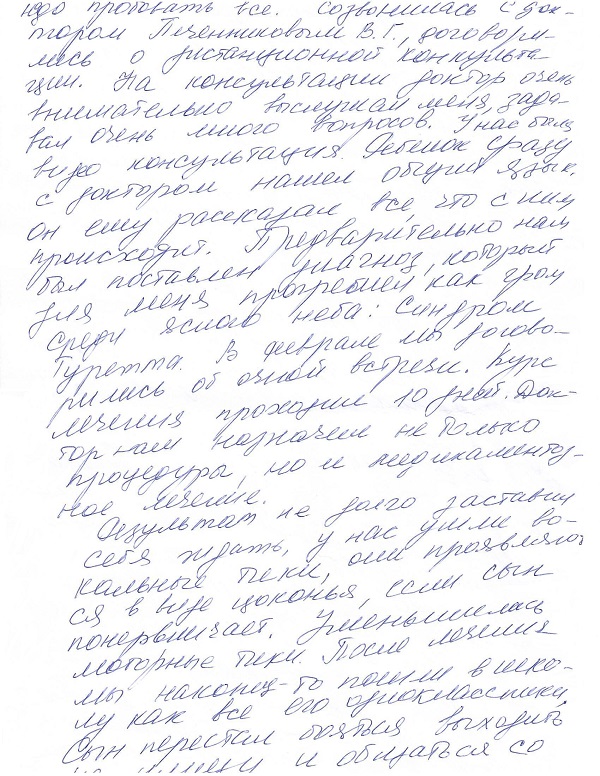 надо пробовать все. Созвонилась с док-
тором Печенниковым В.Г., договори-
лись о дистанционной консульта-
ции. На консультации доктор очень
внимательно выслушал меня, зада-
вал очень много вопросов. У нас была
видео консультация. Ребенок сразу
с доктором нашел общий язык.
Он ему рассказал все, что с ним
происходит. Предварительно нам
был поставлен диагноз, который
для меня прогремел как гром
среди ясного неба: Синдром
Туретта. В феврале мы догово-
рились об очной встречи. Курс
лечения проходил 10 дней. Док-
тор нам назначил не только
процедура, но и медикаментоз-
ное лечение.
Результат не долго заставил
себя ждать, у нас ушли во-
кальные тики, они проявляло
ся в виде цоконья, если сын
понервничает. Уменьшилась
моторные тики. После лечения
мы наконец-то пошли в шко-
лу как все его одноклассники.
Сын перестал бояться выходить
и общаться со